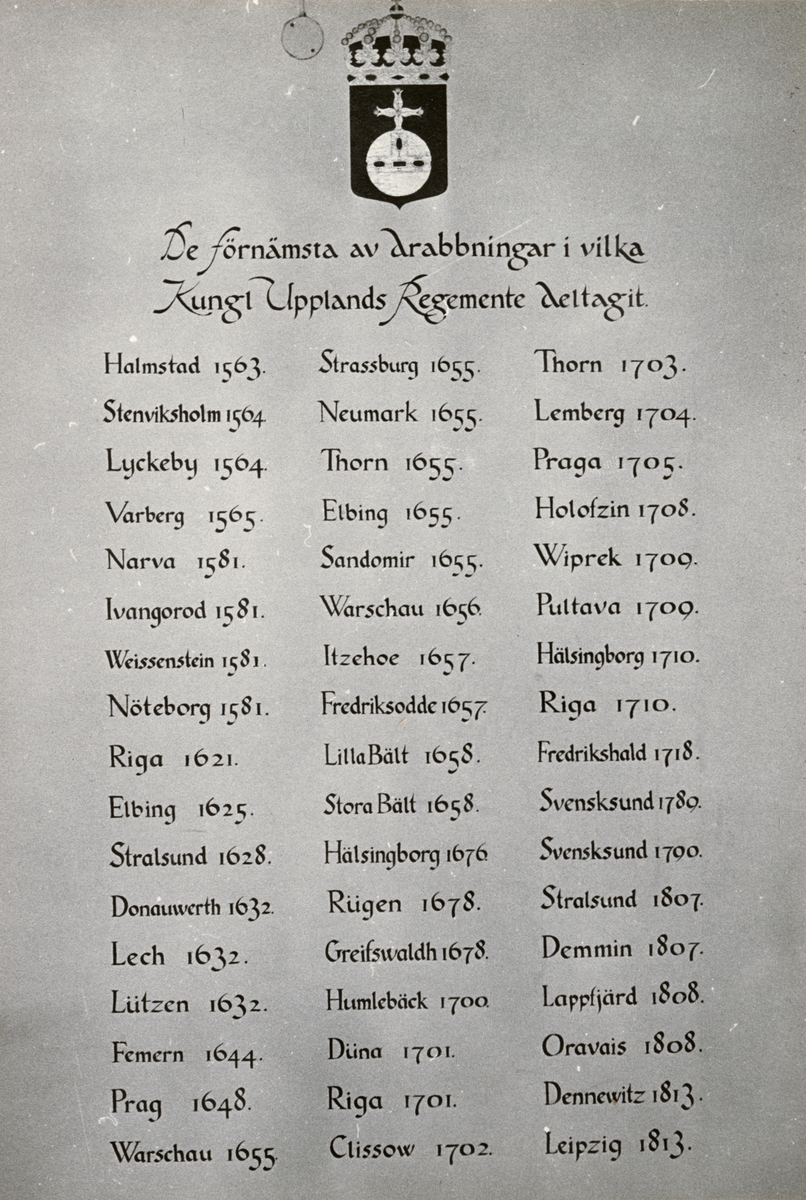 De förnämsta av drabbningar i vilka
Kungl Upplands Regemente deltagit.
Halmstad 1563.
Stenviksholm 1564
Lyckeby 1564.
Varberg 1565.
Narva 1581.
Ivangorod 1581.
Weissenstein 1581.
Nöteborg 1581.
Riga 1621.
Elbing 1625.
Stralsund 1628.
Donauwerth 1632.
Lech 1632.
Lützen 1632.
Femern 1644.
Prag 1648.
Warschau 1655.
Strassburg 1655.
Neumark 1655.
Thorn 1655.
Elbing 1655.
Sandomir 1655.
Warschau 1656.
Itzehoe 1657.
Fredriksodde 1657.
Lilla Bält 1658.
Stora Bält 1658.
Hälsingborg 1676
Rügen 1678.
Greifswaldh 1678.
Humlebäck 1700.
Düna 1701.
Riga 1701.
Clissow 1702.
Thorn 1703.
Lemberg 1704.
Praga 1705.
Holofzin 1708.
Wiprek 1709.
Pultava 1709.
Hälsingborg 1710.
Riga 1710.
Fredrikshald 1718.
Svensksund 1789.
Svensksund 1790.
Stralsund 1807.
Demmin 1807.
Lappfjärd 1808.
Oravais 1808.
Dennewitz 1813.
Leipzig 1813.